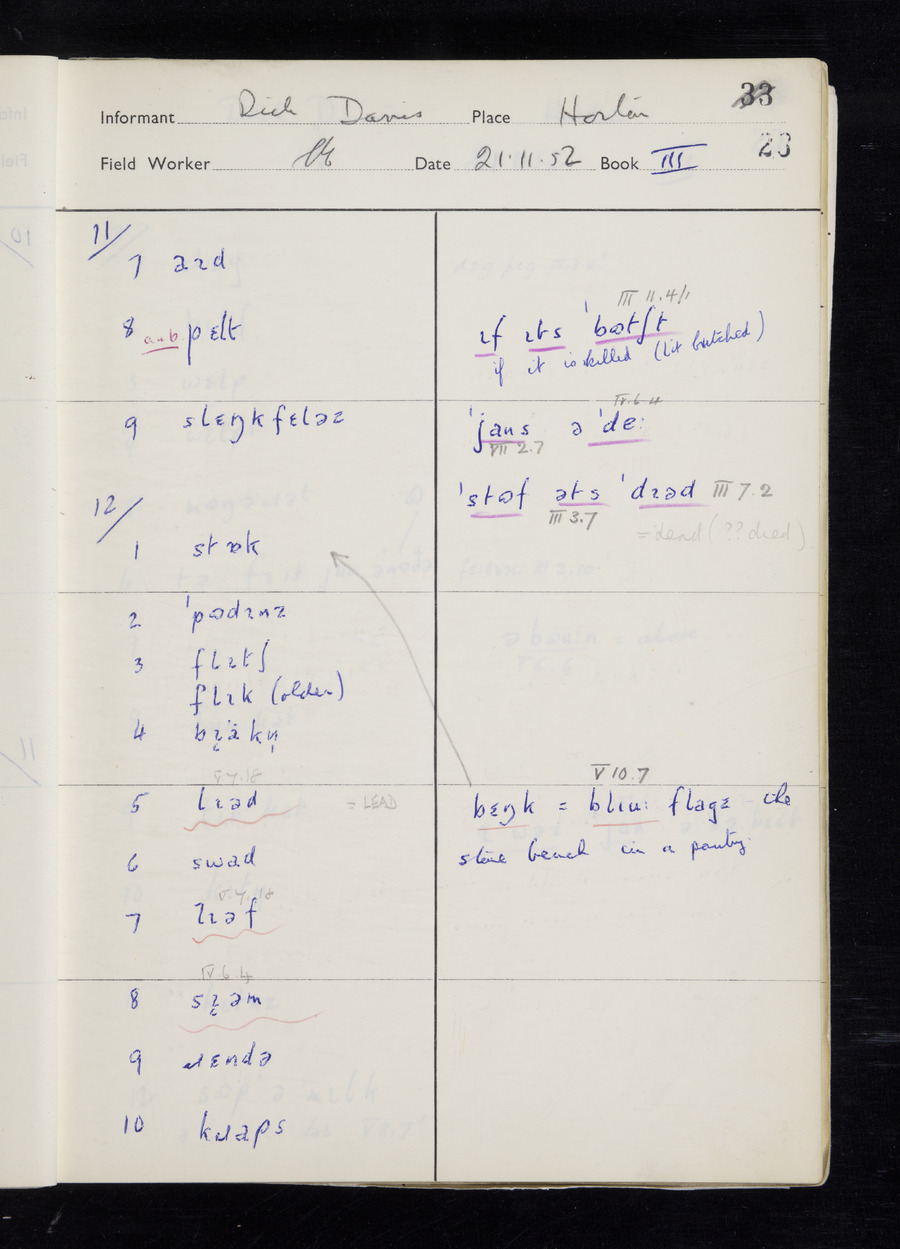 33
Informant Dick Davis Place Horton
23
Field Worker Date 21.11.52 Book III
11/
7 aɪd
III 11.4/1
8 a.w.b. pɛlt
ɪf ɪts ˈbɵtʃt
if it is killed (lit butched)
IV.6.4
9 slɛŋkfɛləz
ˈjans ə ˈde:
VII 2.7
12/
ˈstɵf əts ˈdɪəd III 7.2
III 3.7
= dead (?? died)
1 stɒk
2 ˈpɵdɪnz
3 flɪtʃ
flɪk (older)
4
V 7.18
V 10.7
5 lɪəd = LEAD
bɛŋk = blɪu: flagz the
stone bench in a pantry
6 swad
V.7.18
7 lɪəf
IV 6.4
8 sɪ̞əm
9 ɹɛndə
10 kɹaps